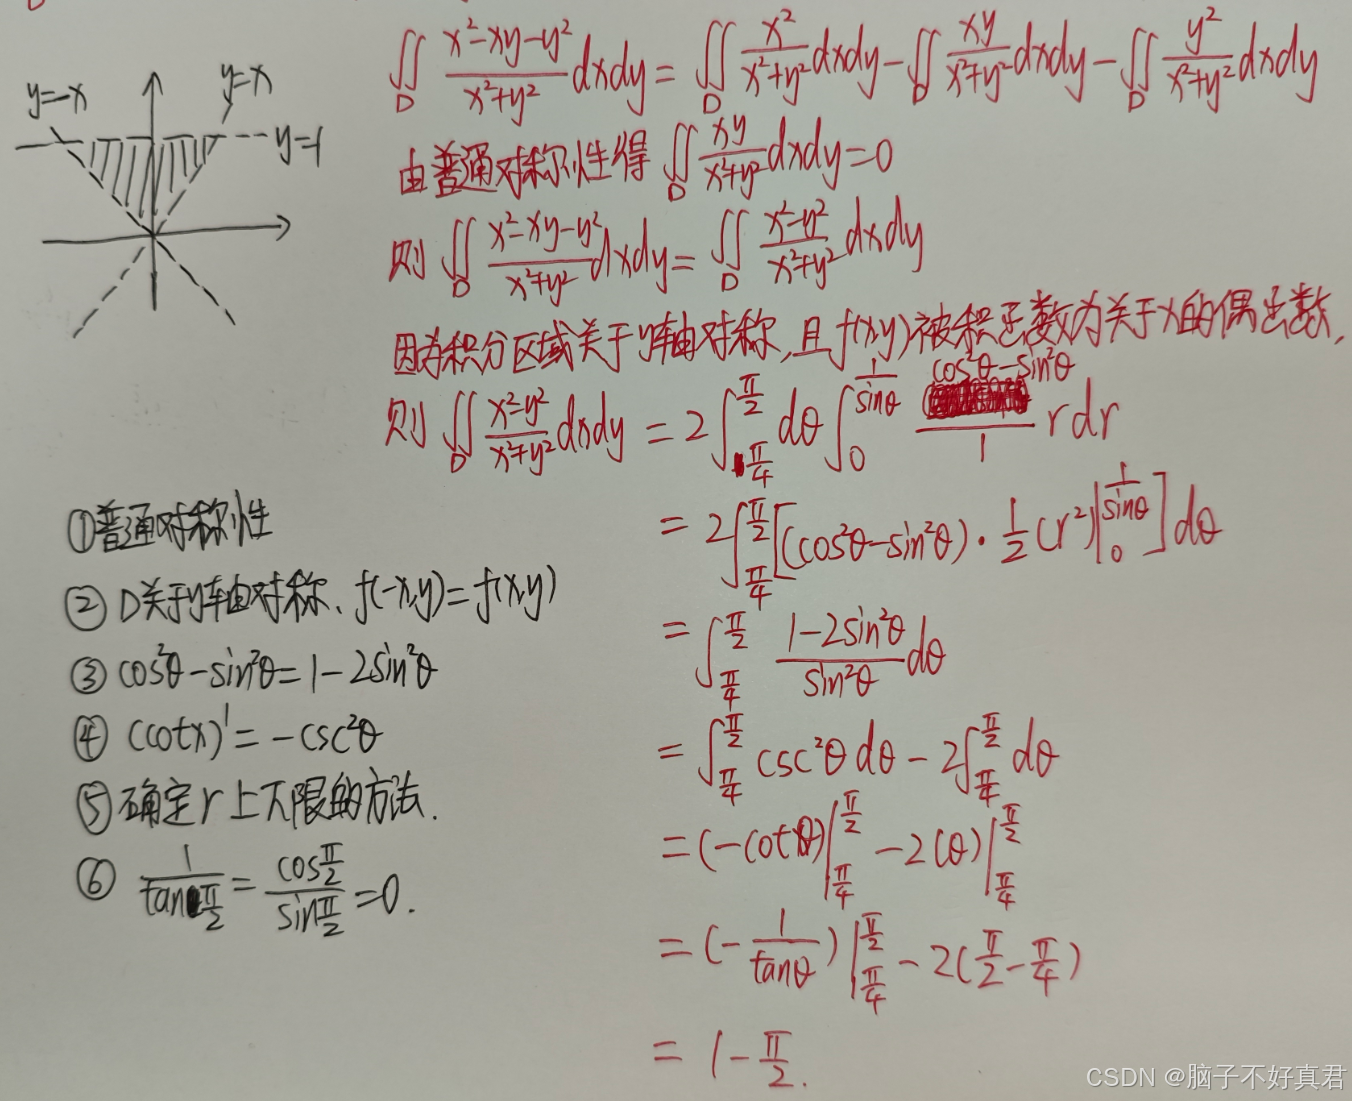 ∬_D (x²-xy-y²)/(x²+y²) dxdy = ∬_D x²/(x²+y²) dxdy - ∬_D xy/(x²+y²) dxdy - ∬_D y²/(x²+y²) dxdy
y=-x
y=x
y=1
由普通对称性得 ∬_D xy/(x²+y²) dxdy=0
则 ∬_D (x²-xy-y²)/(x²+y²) dxdy = ∬_D (x²-y²)/(x²+y²) dxdy
因为积分区域关于y轴对称,且f(x,y)被积函数为关于x的偶函数,
则 ∬_D (x²-y²)/(x²+y²) dxdy = 2∫_{π/4}^{π/2} dθ ∫_0^{1/sinθ} (cos²θ-sin²θ)/1 rdr
= 2∫_{π/4}^{π/2} [(cos²θ-sin²θ)·1/2(r²)|_0^{1/sinθ}] dθ
= ∫_{π/4}^{π/2} (1-2sin²θ)/sin²θ dθ
= ∫_{π/4}^{π/2} csc²θ dθ - 2∫_{π/4}^{π/2} dθ
= (-cotθ)|_{π/4}^{π/2} - 2(θ)|_{π/4}^{π/2}
= (-1/tanθ)|_{π/4}^{π/2} - 2(π/2-π/4)
= 1-π/2.
①普通对称性
②D关于y轴对称、f(-x,y)=f(x,y)
③cos²θ-sin²θ=1-2sin²θ
④(cotx)'=-csc²θ
⑤确定r上下限的方法.
⑥ 1/tanπ/2 = cosπ/2 / sinπ/2 = 0.
CSDN @脑子不好真君